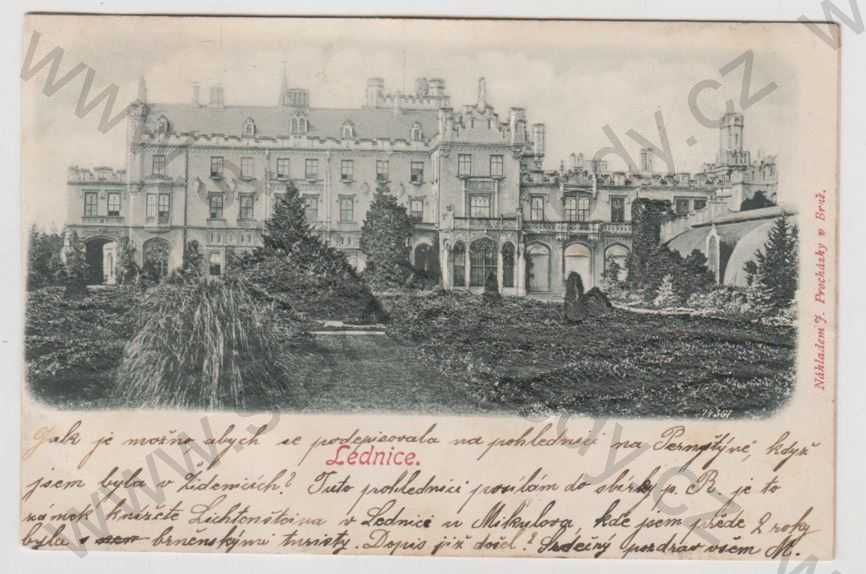 14361
Nákladem J. Procházky v Brně.
Jak je možno abych se podepisovala na pohlednici na Pernštýně, když
Lednice.
jsem byla v Židenicích? Tuto pohlednici posílám do sbírky p. R. je to
zámek knížete Lichtenšteina v Lednici u Mikulova, kde jsem přede 2 roky
byla s brněnskými turisty. Dopis již došel? Srdečný pozdrav všem M.